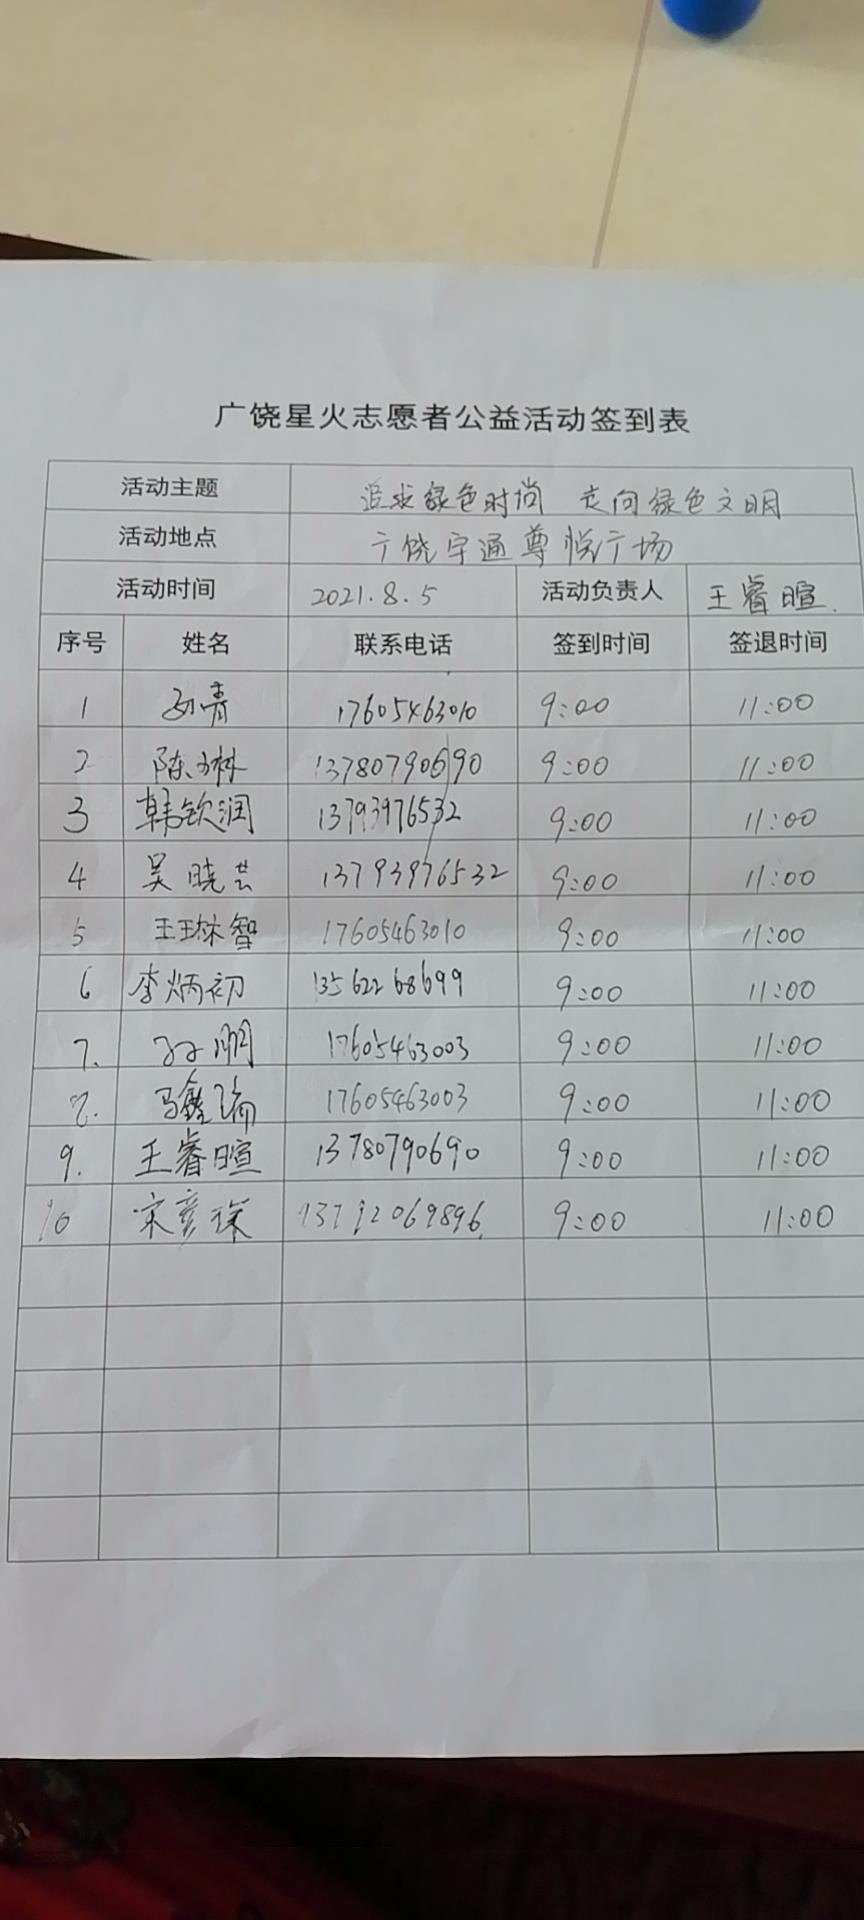 广饶星火志愿者公益活动签到表
活动主题 追求绿色时尚 走向绿色文明
活动地点 广饶宇通尊悦广场
活动时间 2021.8.5 活动负责人 王睿暄.
序号 姓名 联系电话 签到时间 签退时间
1 青 17605463010 9:00 11:00
2 陈琳 13780790690 9:00 11:00
3 韩钦润 13793976532 9:00 11:00
4 吴晓芸 13793976532 9:00 11:00
5 王琳智 17605463010 9:00 11:00
6 李炳初 13562268699 9:00 11:00
7. 孙朋 17605463003 9:00 11:00
8. 马鑫瑞 17605463003 9:00 11:00
9. 王睿暄 13780790690 9:00 11:00
10 宋彦琛 13792069896. 9:00 11:00